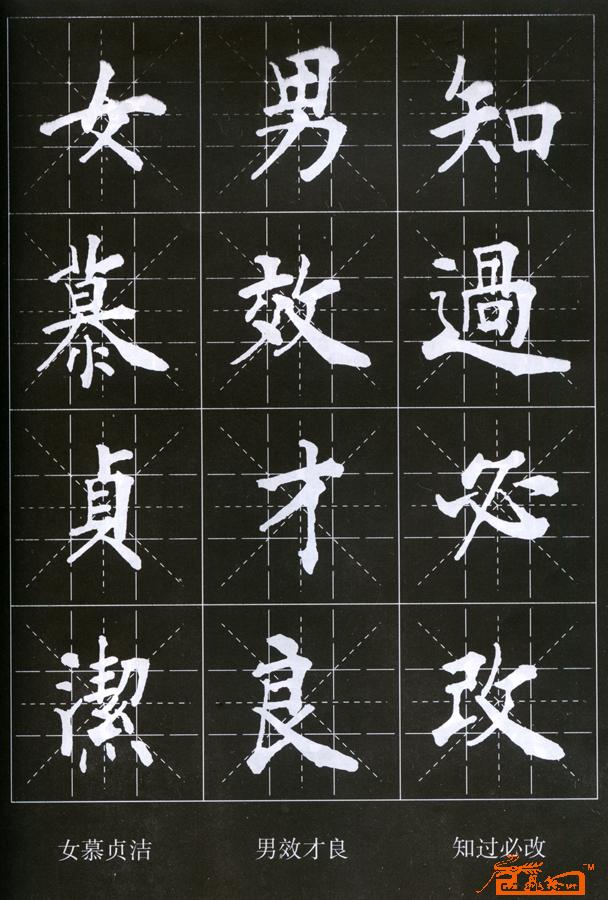 知過必改
男效才良
女慕貞潔
知过必改
男效才良
女慕贞洁